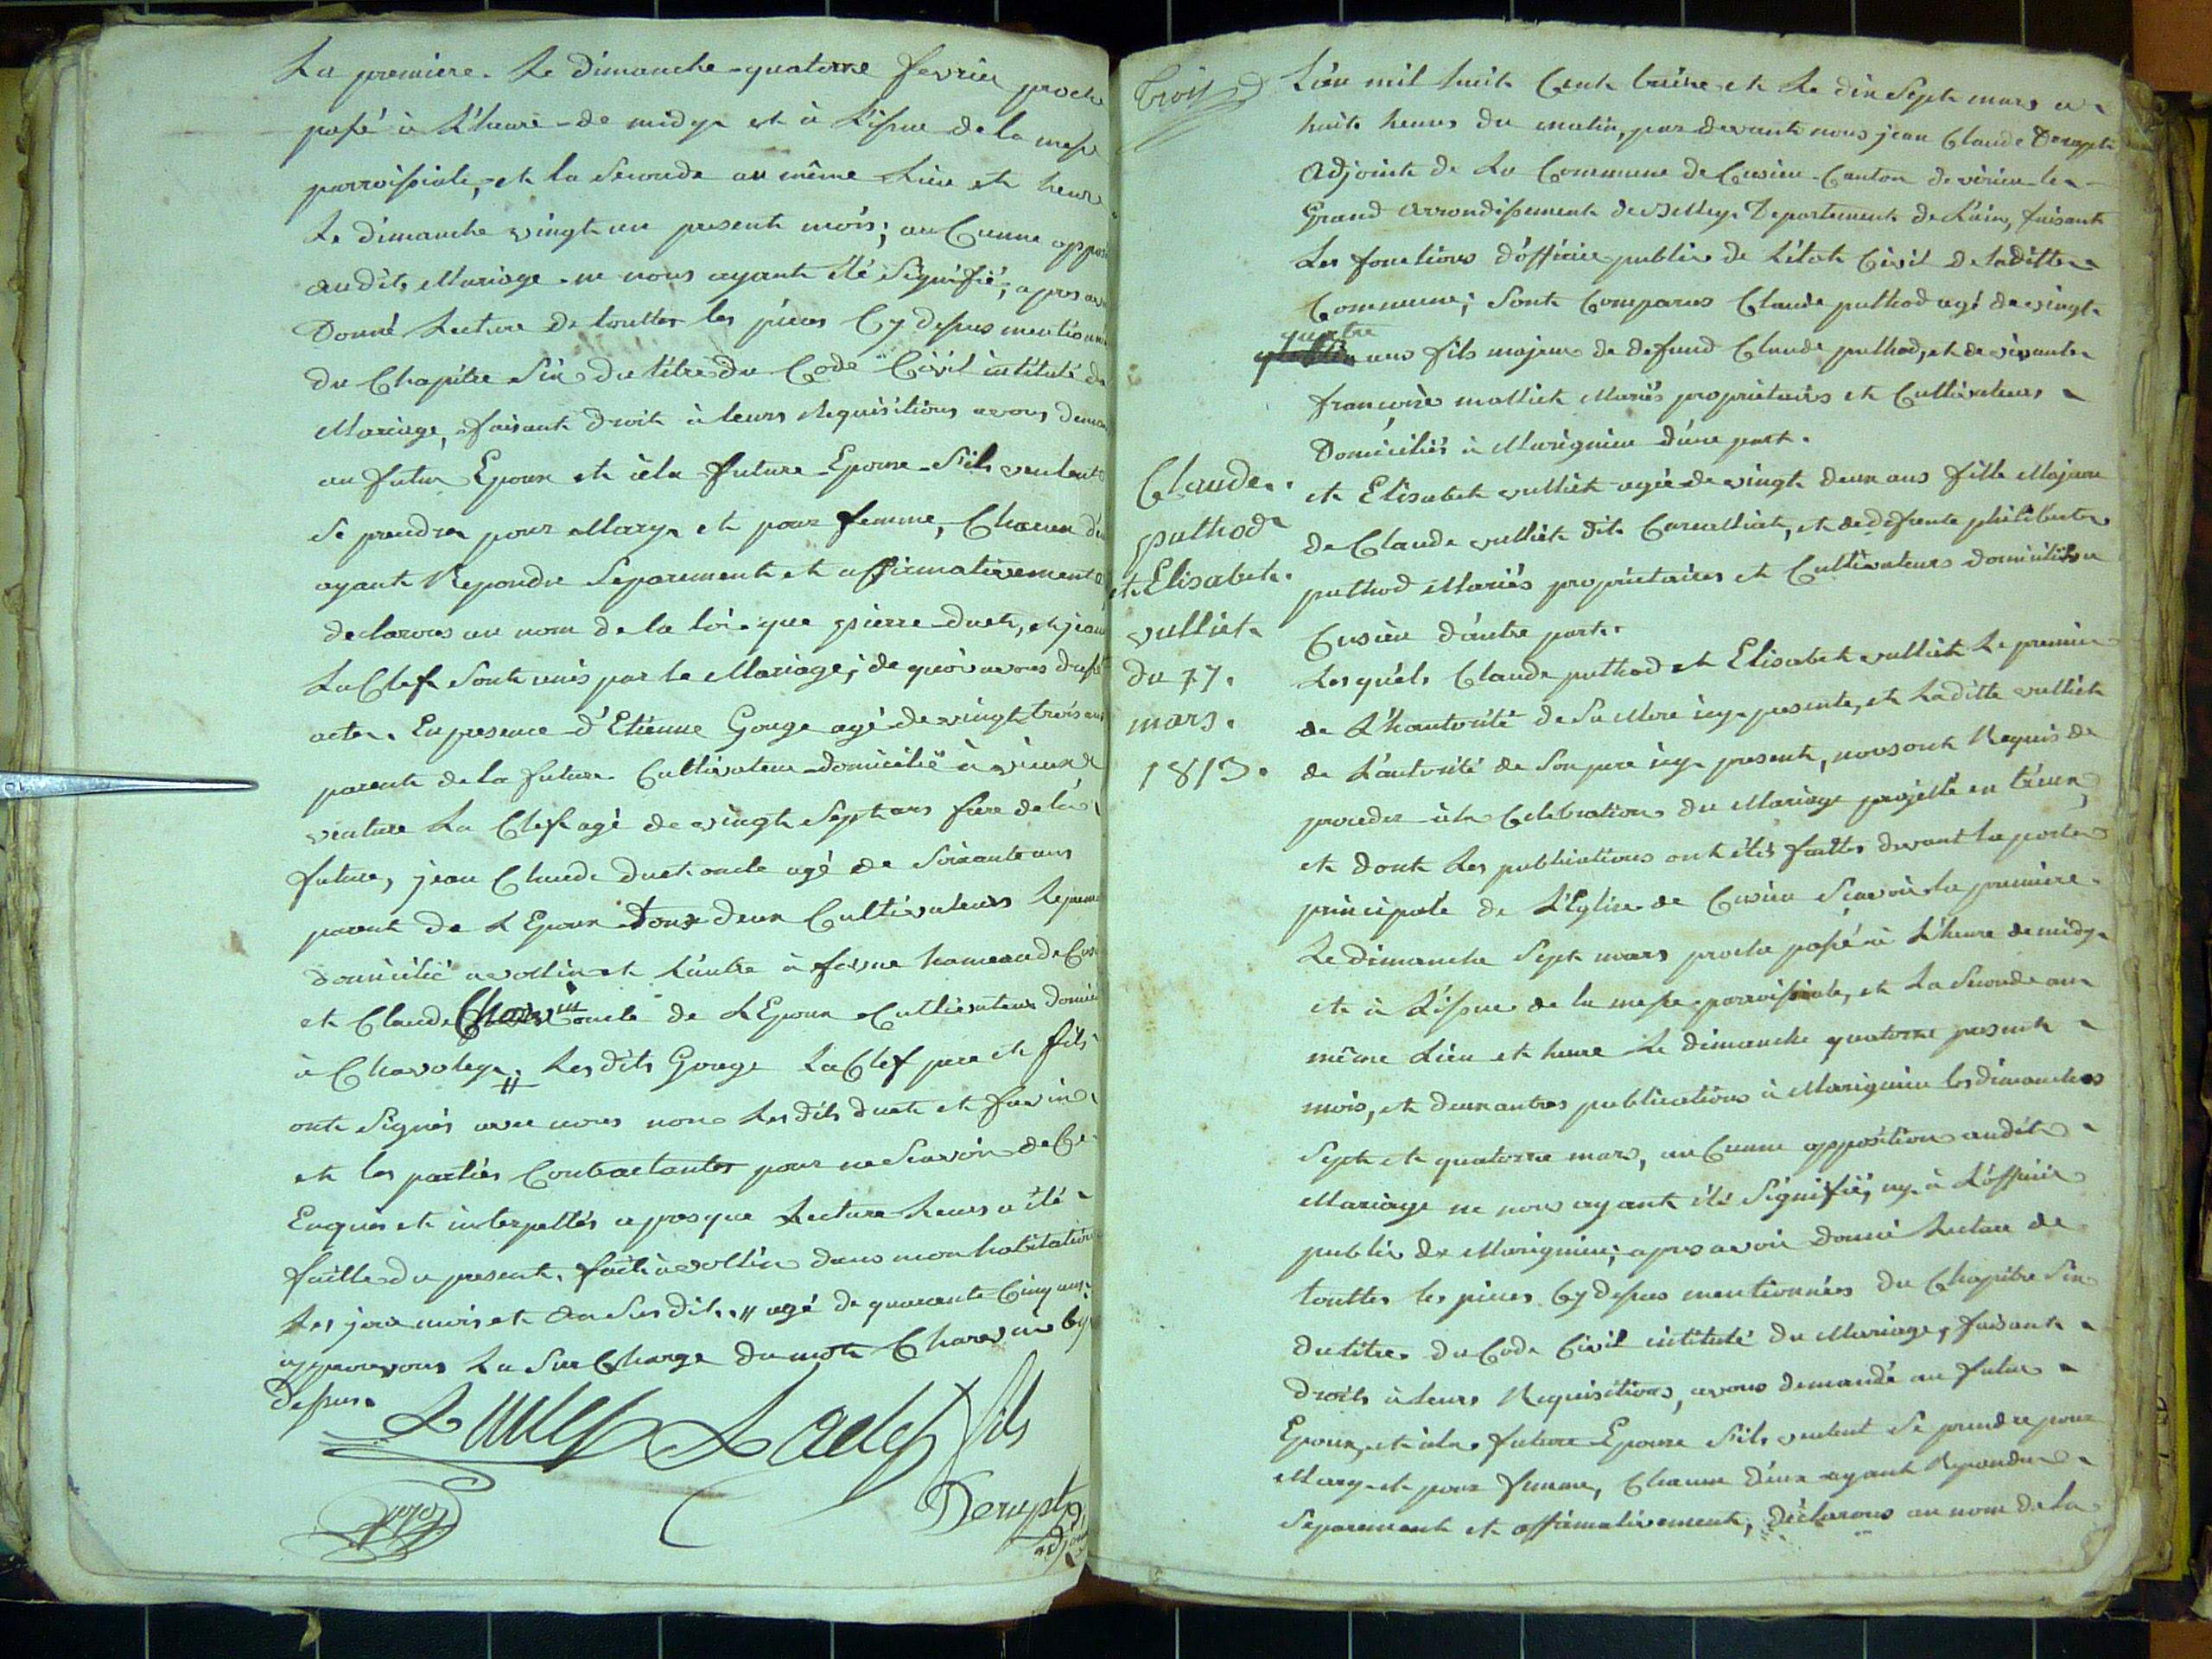 La premiere. Le dimanche quatorze fevrier proch
passé à L'heure de midy et à L'issue de la messe
parroissiale, et la Seconde au même Lieu et heure
Le dimanche vingt un present mois; au Cunne oppos
audit Mariage ne nous ayant été Signifié; apres av
Donné Lecture de touttes les pièces Cy dessus mentionn
du Chapitre Six du titre du Code Civil intitulé du
Mariage, faisant droit à leurs Requisitions avons deman
au futur Epoux et à la future Epouse S'ils veulent
Se prendre pour Mary et pour femme, Chacun d'e
ayant Repondu Separement et affirmativement
declarons au nom de la loi que pierre duet, et jean
La Clef Sont unis par le Mariage; de quoi avons dressé
acte. En presence d'Etienne Gouge agé de vingt trois ans
parent de la future Cultivateur domicilié à vieux
venture La Clef agé de vingt Sept ans frère de la
future, jean Claude duet oncle agé de Soixante ans
parent de L'Epoux tous deux Cultivateurs Le premier
domicilié a vollin et L'autre à hameau de Cus
et Claude Charvin oncle de L'Epoux Cultivateur domici
à Chavoley // Les dits Gouge La Clef pere et fils
ont Signés avec nous non Les dits duet et
et les parties Contractantes pour ne Scavoir de Ce
Enquis et interpellés apres que Lecture Leurs a été
faitte du present. fait à vollin dans mon habitation
Les jour mois et an Susdits. // agé de quarante Cinq ans
approuvons La Sur Charge du mot Charvin Cy
dessus.
Laclef Laclef fils
Derupt
adjoint
Trois
Claude
puthod
et Elisabeth
vulliet
du 17.
mars.
1813.
L'an mil huit Cent treize et Le dix Sept mars a
huit heures du matin, par devant nous jean Claude Derupt
Adjoint de La Commune de Cusieu Canton de virieu le
Grand Arrondissement de Belley Departement de L'ain, faisant
Les fonctions d'officier public de L'état Civil de laditte
Commune; Sont Comparus Claude puthod agé de vingt
quatre
ans fils majeur de defund Claude puthod, et de vivante
françoise molliet Mariés propriétaires et Cultivateurs
Domiciliés à Marignieu d'une part.
et Elisabeth vulliet agée de vingt deux ans fille Majeure
de Claude vulliet dit et de defunte philiberte
puthod Mariés propriétaires et Cultivateurs domiciliés a
Cusieu d'autre part.
Lesquels Claude puthod et Elisabeth vulliet Le premier
de L'hautorité de Sa Mere icy presente, et Laditte vulliet
de L'autorité de Son pere icy present, nous ont Requis de
proceder à la Celebration du Mariage projetté entr'eux,
et dont Les publications ont étés faittes devant la porte
principale de L'Eglise de Cusieu Scavoir la premiere
Le dimanche Sept mars proche passé à L'heure de midy
et à L'issue de la messe parroissiale, et La Seconde au
même Lieu et heure Le dimanche quatorze present
mois, et deux autres publications à Marignieu les dimanches
Sept et quatorze mars, au Cunne opposition audit
Mariage ne nous ayant été Signifié, ny à L'officier
public de Marignieu; apres avoir donné Lecture de
touttes les pièces Cy dessus mentionnées du Chapitre Six
du titre du Code Civil intitulé du Mariage, faisant
droit à leurs Requisitions, avons demandé au futur
Epoux, et à la future Epouse S'ils veulent Se prendre pour
Mary et pour femme, Chacun d'eux ayant Repondu
Separement et affirmativement, déclarons au nom de la